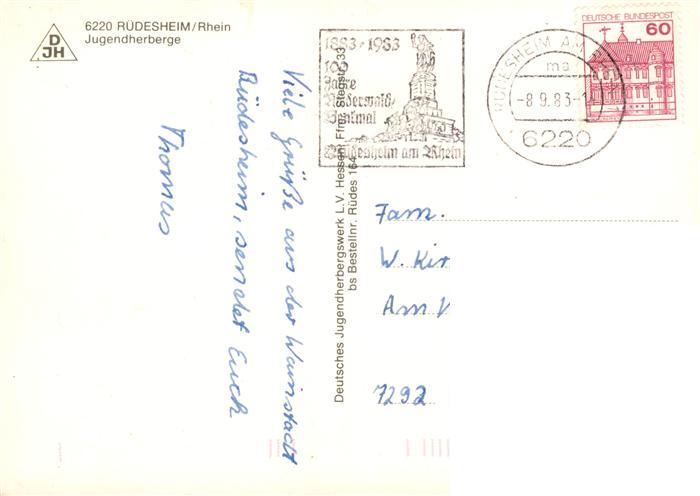 D
JH
6220 RÜDESHEIM/Rhein
Jugendherberge
Viele Grüße aus der Weinstadt
Rüdesheim, sendet Euch
Thomas
Deutsches Jugendherbergswerk L.V. Hessen, Ffm., Stegstr. 33
bs Bestellnr. Rüdes 164
1883-1983
100
Jahre
Niederwald/
Denkmal
Rüdesheim am Rhein
RÜDESHEIM AM
ma
-8.9.83-1
6220
DEUTSCHE BUNDESPOST
60
Fam.
W. Kir
Am
7292